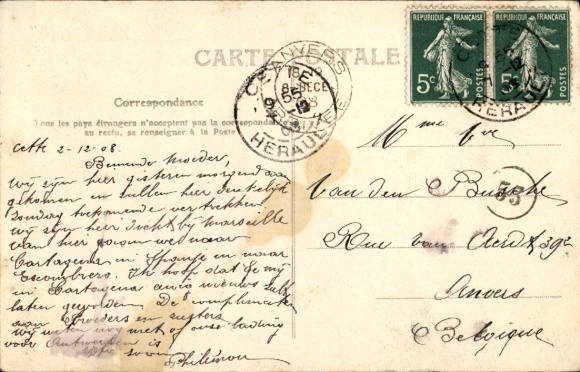 CARTE POSTALE
Correspondance
Tous les pays étrangers n'acceptent pas la correspondance
au recto, se renseigner à la Poste
RÉPUBLIQUE FRANÇAISE
5c
POSTES
RÉPUBLIQUE FRANÇAISE
5c
POSTES
CETTE
HERAULT
ANVERS
DECE
CETTE
HERAULT
55
Cette 2-12-08.
Beminde Moeder,
Wij zijn hier gisteren morgend aan
gekomen en zullen hier denkelijk
Zondag toekomende vertrekken.
Wij zijn hier dicht bij Marseille
van hier gaan wij naar
Cartagena in Spanje en naar
Escombrera. Ik hoop dat ge mij
in Cartagena nieuws zult
laten geworden. De complimenten
aan Broeders en zusters
wij weten nog niet of onze lading
voor Antwerpen is
zoon
Philémon
Mme Vve
Van den Bussche
Rue van Aerdt 39
Anvers
Belgique